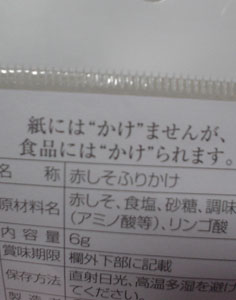 紙には“かけ”ませんが、
食品には“かけ”られます。
名 称 赤しそふりかけ
原材料名 赤しそ、食塩、砂糖、調味
(アミノ酸等)、リンゴ酸
内 容 量 6g
賞味期限 欄外下部に記載
保存方法 直射日光、高温多湿を避け
てください。